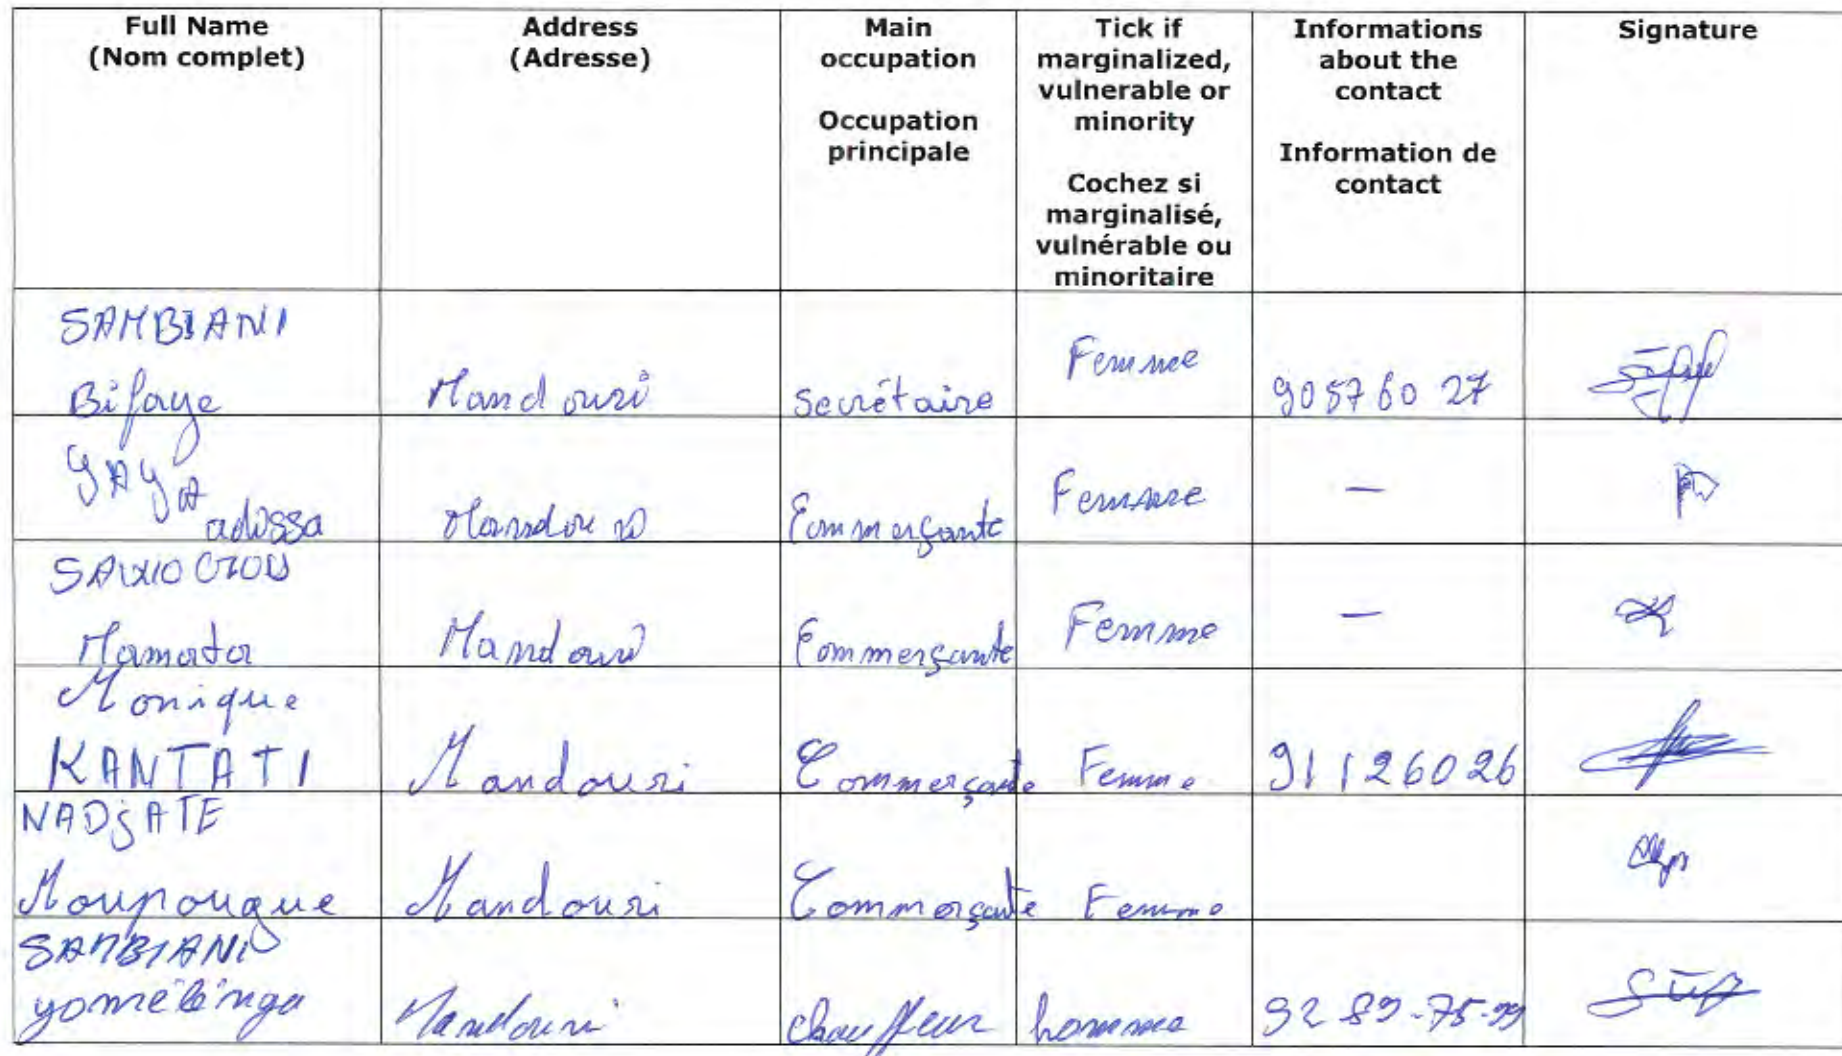 Full Name
(Nom complet)
Address
(Adresse)
Main
occupation
Occupation
principale
Tick if
marginalized,
vulnerable or
minority
Cochez si
marginalisé,
vulnérable ou
minoritaire
Informations
about the
contact
Information de
contact
Signature
SAMBIANI
Bifaye
Mandouri
Secrétaire
Femme
90576027
YAYA
adissa
Mandouri
Commerçante
Femme
—
Mamata
Mandouri
Commerçante
Femme
—
Monique
KANTATI
Mandouri
Commerçante
Femme
91126026
NADJATE
Moupougue
Mandouri
Commerçante
Femme
SAMBIANI
Mandouri
chauffeur
homme